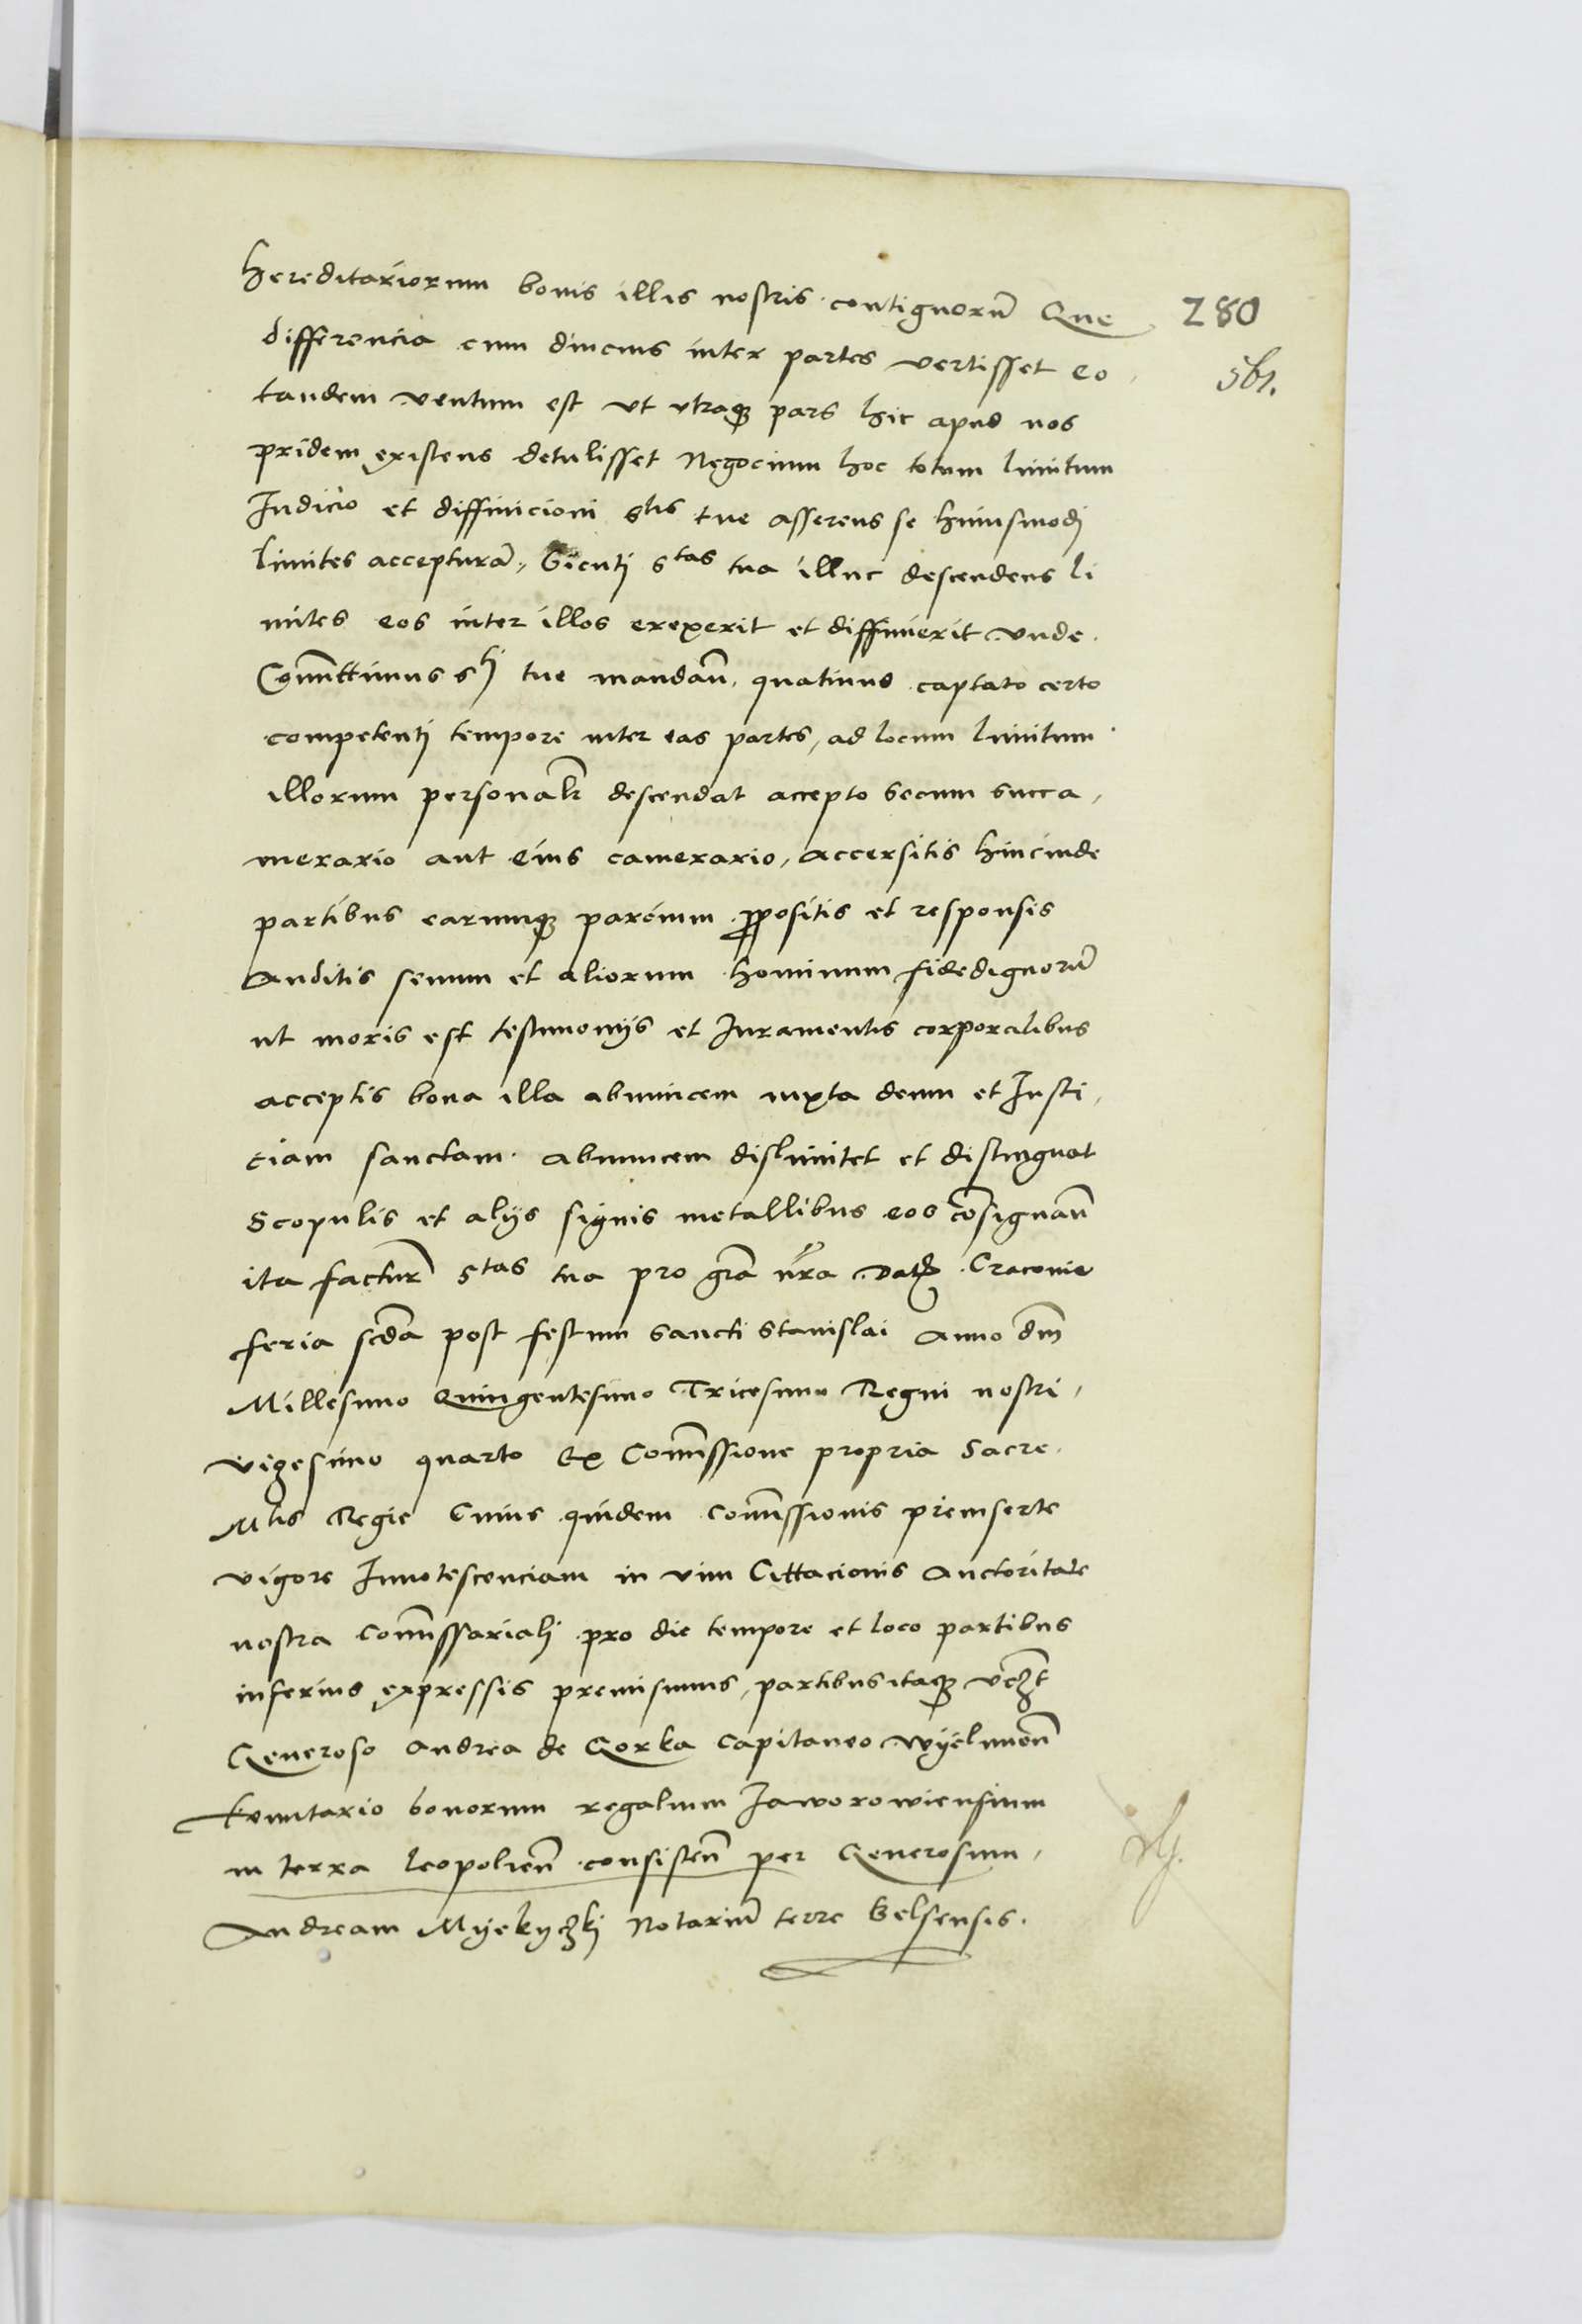 hereditariorum bonis illis nostris contiguorũ Que
280
differencia cum diucius inter partes vertisset eo
561.
tandem ventum est vt vtraqȝ pars hic apud nos
pridem existens detulisset Negocium hoc totum limitum
Iudicio et diffinicioni Stis tue asserens se huiusmodj
limites accepturã, Sicuti Stas tua illuc descendens li
mites eos inter illos erexerit et diffinierit vnde
Com̃ittimus Stj tue mandañ. quatinus captato certo
competentj tempore inter eas partes, ad locum limitum
illorum personalr̃ descendat accepto secum succa,
merario aut eius camerario, accersitis hincinde
partibus earumqȝ parcium ꝓpositis et responsis
Auditis senum et aliorum hominum fidedignorũ
ut moris est testimonijs et Iuramentis corporalibus
acceptis bona illa abinuicem iuxta deum et Iusti,
ciam sanctam abinuicem dislimitet et distinguat
Scopulis et alijs signis metallibus eos cõsignañ
ita factur̃ Stas tua pro grã nr̃a Datȝ Cracouie
feria scđa post festum sancti Stanislai Anno dm̃
Millesimo Quingentesimo Tricesimo Regni nostri,
vigesimo quarto Ex Com̃issione propria Sacre
Mtis Regie Cuius quidem com̃issionis preinserte
vigore Innotescenciam in vim Cittacionis Auctoritate
nostra com̃issarialj pro die tempore et loco partibus
inferius expressis premisimus, partibus itaqȝ vcȝt
Generoso Andrea de Gorka Capitaneo Wyelunen̄
tenutario bonorum regalium Iaworowiensium
in terra leopolien̄ consisten̄ per Generosum,
Andream Myekyczkj Notariũ terre Belsensis.